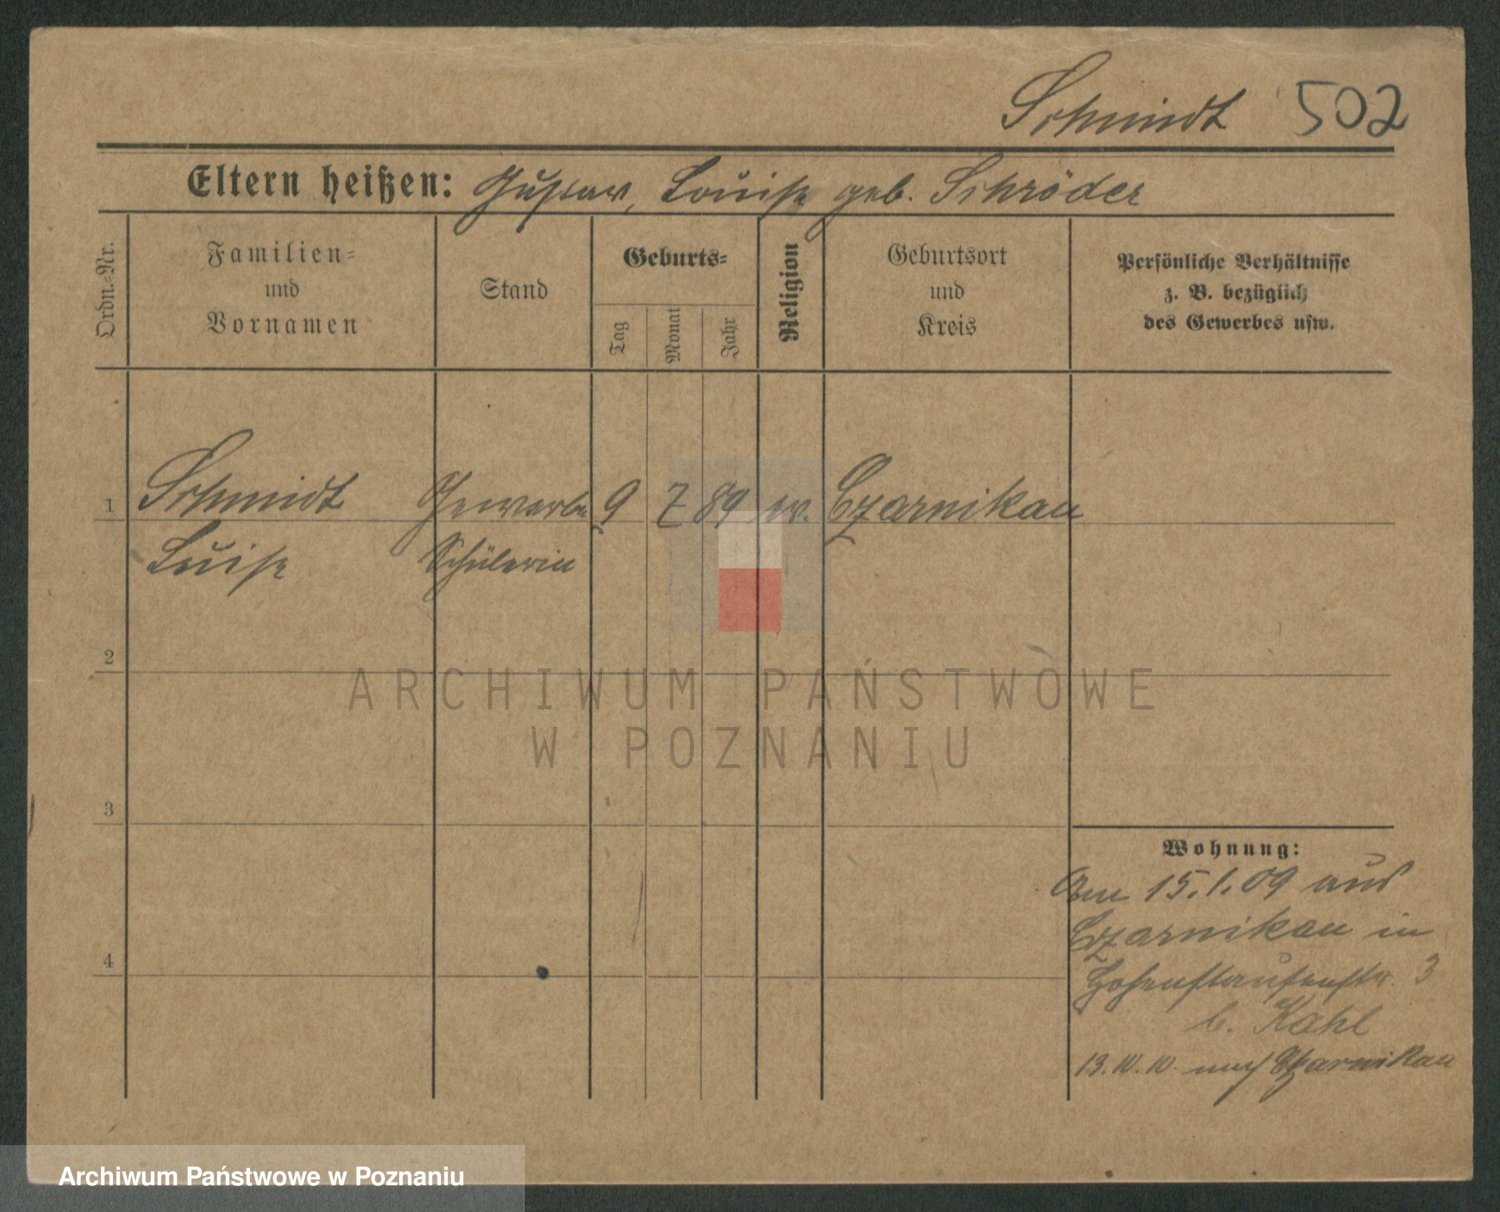 Schmidt 502
Eltern heißen: Gustav, Louise geb. Schröder
Ordn.-Nr.
Familien-
und
Vornamen
Stand
Geburts-
Tag
Monat
Jahr
Religion
Geburtsort
und
Kreis
Persönliche Verhältnisse
z. B. bezüglich
des Gewerbes usw.
1 Schmidt Gewerbe 9 7 89 ev. Czarnikau
Luise Schülerin
2
3
4
ARCHIWUM PAŃSTWOWE
W POZNANIU
Wohnung:
Am 15.1.09 aus
Czarnikau in
Hohenstaufenstr. 3
b. Kahl
nach Czarnikau
Archiwum Państwowe w Poznaniu